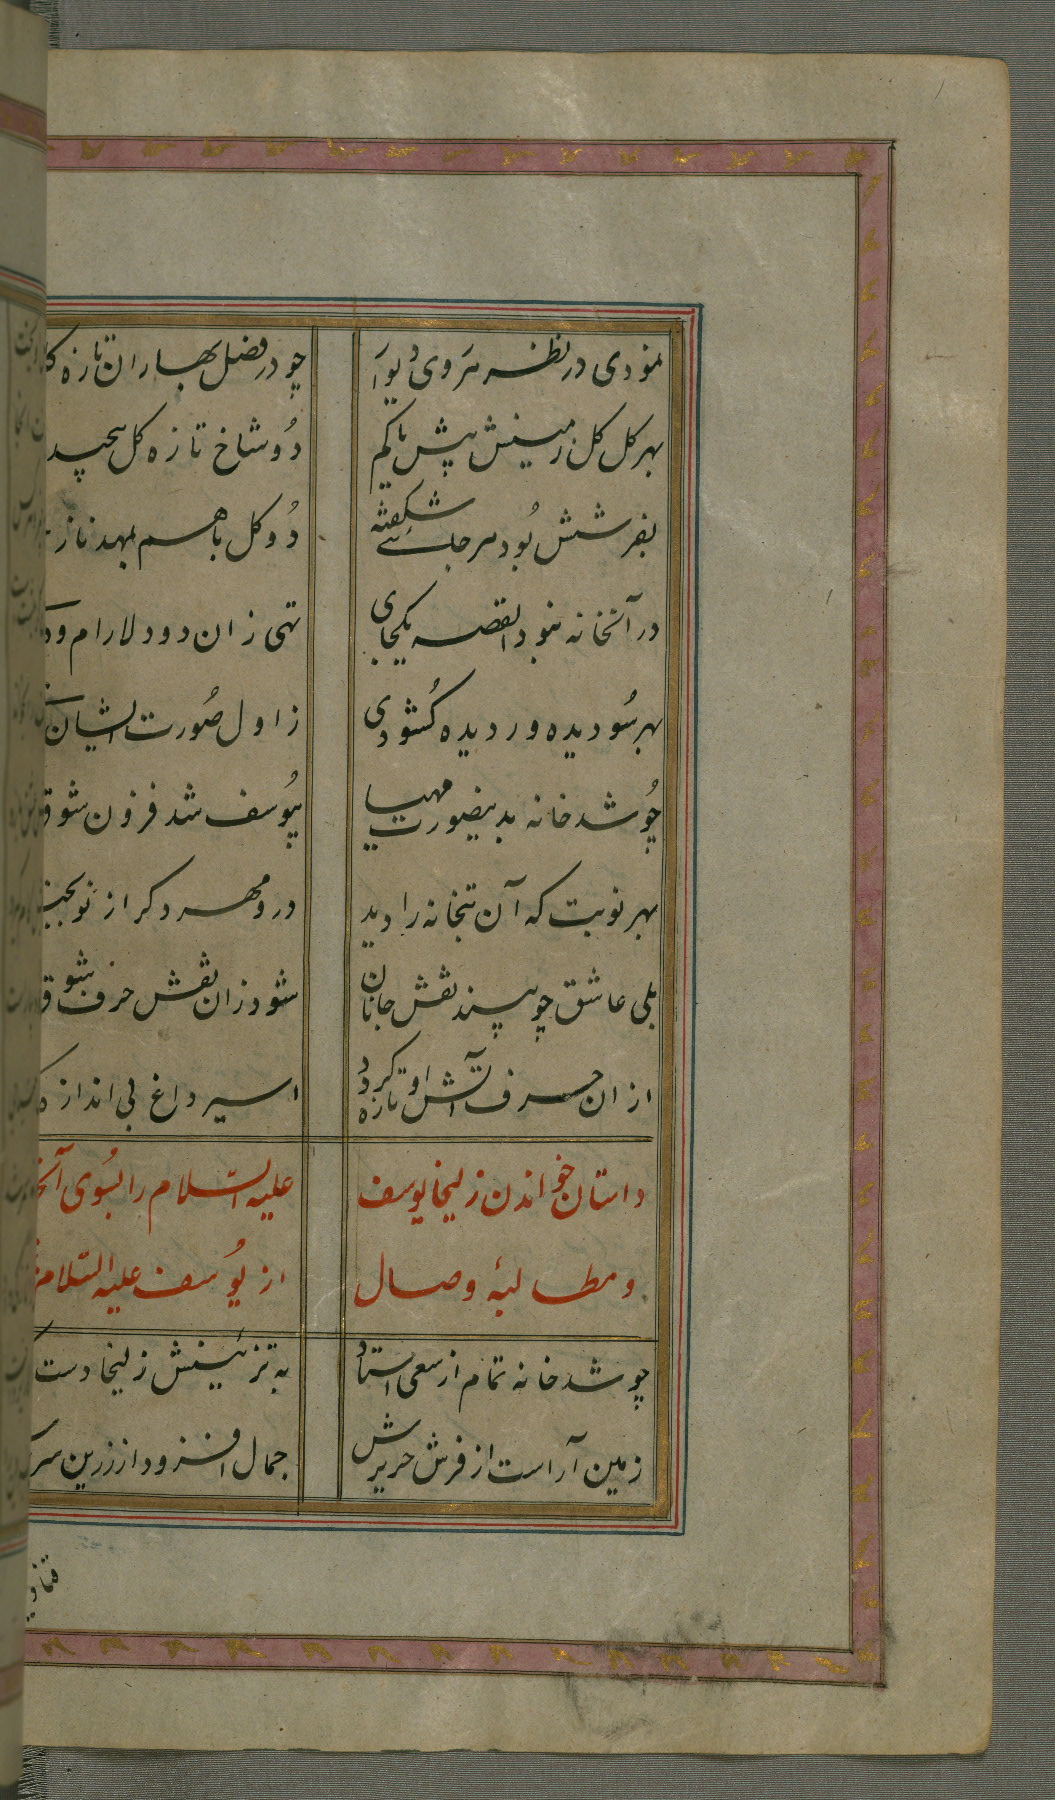 نمودی در نظر هر روی دیوار چو در فصل بهاران تازه
بهر کل کل زمینش پیش یا کم دو شاخ تازه کل پیچیده
بفرشش بود هر جا شکفته دو کل با هم بمهد ناز
در آنخانه نبود القصه یکجای تهی زان دو دلارام و
بهر سو دیده ور دیده کشودی ز اول صورت ایشان
چو شد خانه بدینصورت مهیا بیوسف شد فزون شوق
بهر نوبت که آن بتخانه را دید درو مهر دکر از نو بجنبید
بلی عاشق چو بیند نقش جانان شود زان نقش حرف شوق
از ان حرف آتش او تازه کردد اسیر داغ بی اندازه
داستان خواندن زلیخا یوسف علیه السلام را بسوی
و مطالبه وصال از یوسف علیه السلام
چو شد خانه تمام از سعی استاد به تزیینش زلیخا دست
زمین آراست از فرش حریرش جمال افزود از زرین